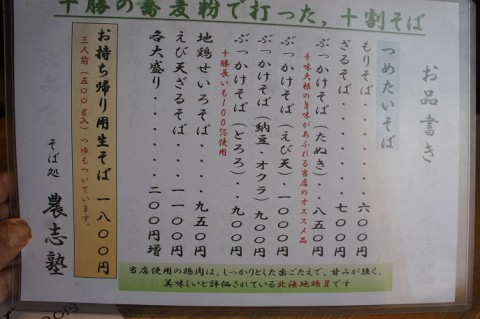 十勝の蕎麦粉で打った、十割そば
お品書き
つめたいそば
もりそば・・・・・・・六〇〇円
ざるそば・・・・・・・七〇〇円
ぶっかけそば(たぬき)・・八五〇円
十味大根の旨味があふれる当店のオススメ品
ぶっかけそば(えび天)・一一〇〇〇円
ぶっかけそば(納豆・オクラ)九〇〇円
ぶっかけそば(とろろ)・・九〇〇円
十勝長いも100%使用
地鶏せいろそば・・・・九五〇円
えび天ざるそば・・・一一〇〇円
各大盛り・・・・・二〇〇円増
お持ち帰り用生そば 一八〇〇円
三人前(五〇〇g入)つゆもついています。
そば処 農志塾
当店使用の鶏肉は、しっかりとした歯ごたえで、甘みが強く、
美味しいと評価されている北海地鶏Ⅱです